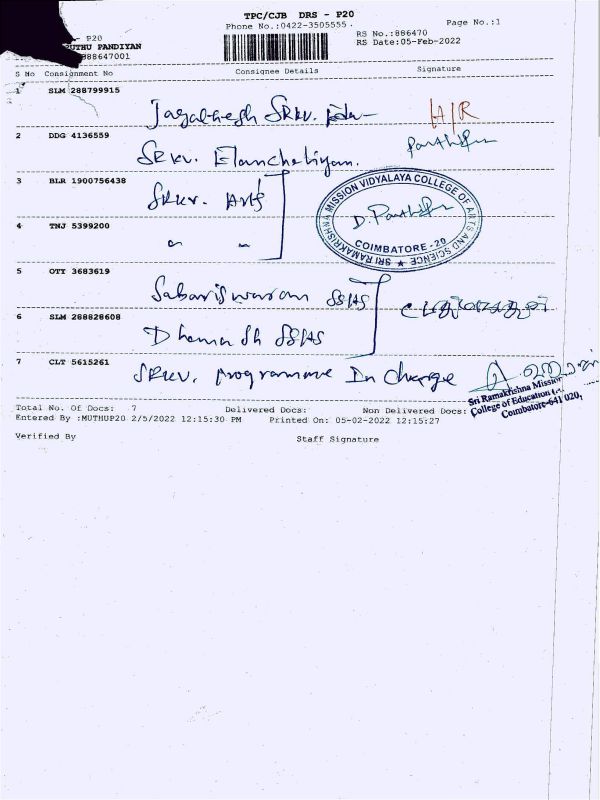 TPC/CJB DRS - P20
Phone No.:0422-3505555
Page No.:1
RS No.:886470
RS Date:05-Feb-2022
- P20
UTHU PANDIYAN
88647001
S No Consignment No Consignee Details Signature
1 SLM 288799915
SRKV.
H/R
2 DDG 4136559
SRKV. Elanchetiyan.
3 BLR 1900756438
SRKV. Arts
SRI RAMAKRISHNA MISSION VIDYALAYA COLLEGE OF ARTS AND SCIENCE
COIMBATORE - 20
4 TNJ 5399200
5 OTY 3683619
Sabariswaran SSIAS
6 SLM 288828608
Dhanush SSIAS
7 CLT 5615261
SRKV. Programme In Charge
Sri Ramakrishna Mission
College of Education
Coimbatore-641 020,
Total No. Of Docs: 7 Delivered Docs: Non Delivered Docs:
Entered By :MUTHUP20 2/5/2022 12:15:30 PM Printed On: 05-02-2022 12:15:27
Verified By Staff Signature